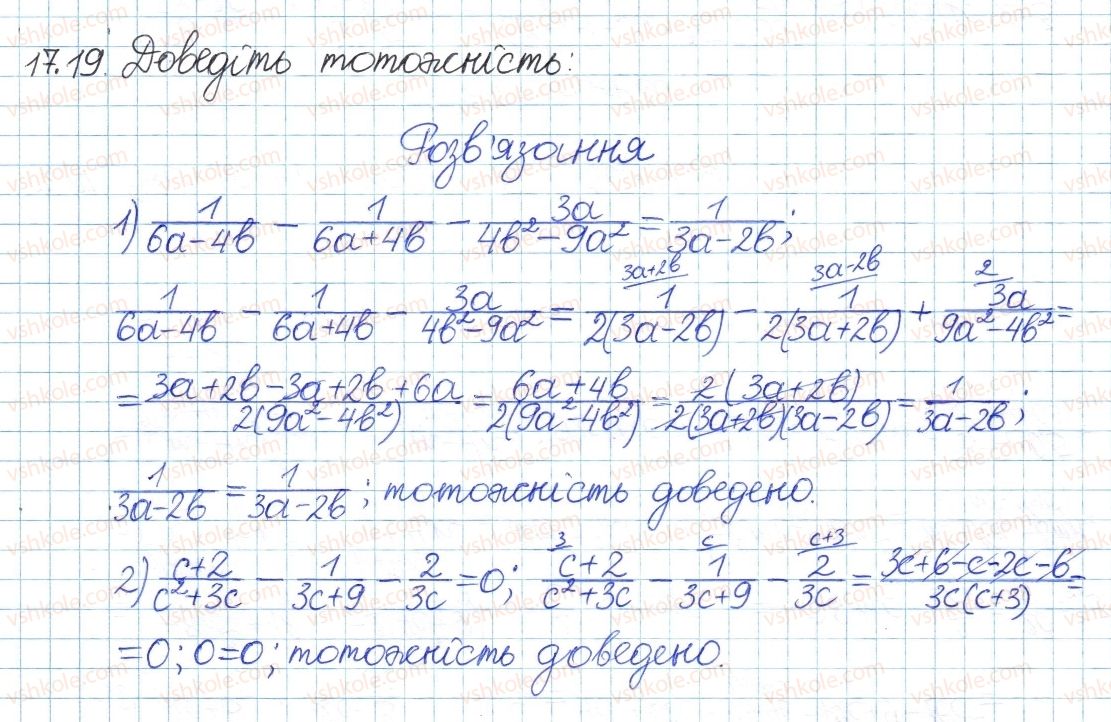 17.19. Доведіть тотожність:
Розв'язання
1) 1/(6a-4b) - 1/(6a+4b) - 3a/(4b²-9a²) = 1/(3a-2b);
1/(6a-4b) - 1/(6a+4b) - 3a/(4b²-9a²) = 3a+2b/ 1/(2(3a-2b)) - 3a-2b/ 1/(2(3a+2b)) + 2/ 3a/(9a²-4b²) =
= (3a+2b-3a+2b+6a)/(2(9a²-4b²)) = (6a+4b)/(2(9a²-4b²)) = 2(3a+2b)/(2(3a+2b)(3a-2b)) = 1/(3a-2b);
1/(3a-2b) = 1/(3a-2b); тотожність доведено.
2) (c+2)/(c²+3c) - 1/(3c+9) - 2/(3c) = 0; 3/ (c+2)/(c²+3c) - c/ 1/(3c+9) - c+3/ 2/(3c) = (3c+6-c-2c-6)/(3c(c+3)) =
= 0; 0=0; тотожність доведено.